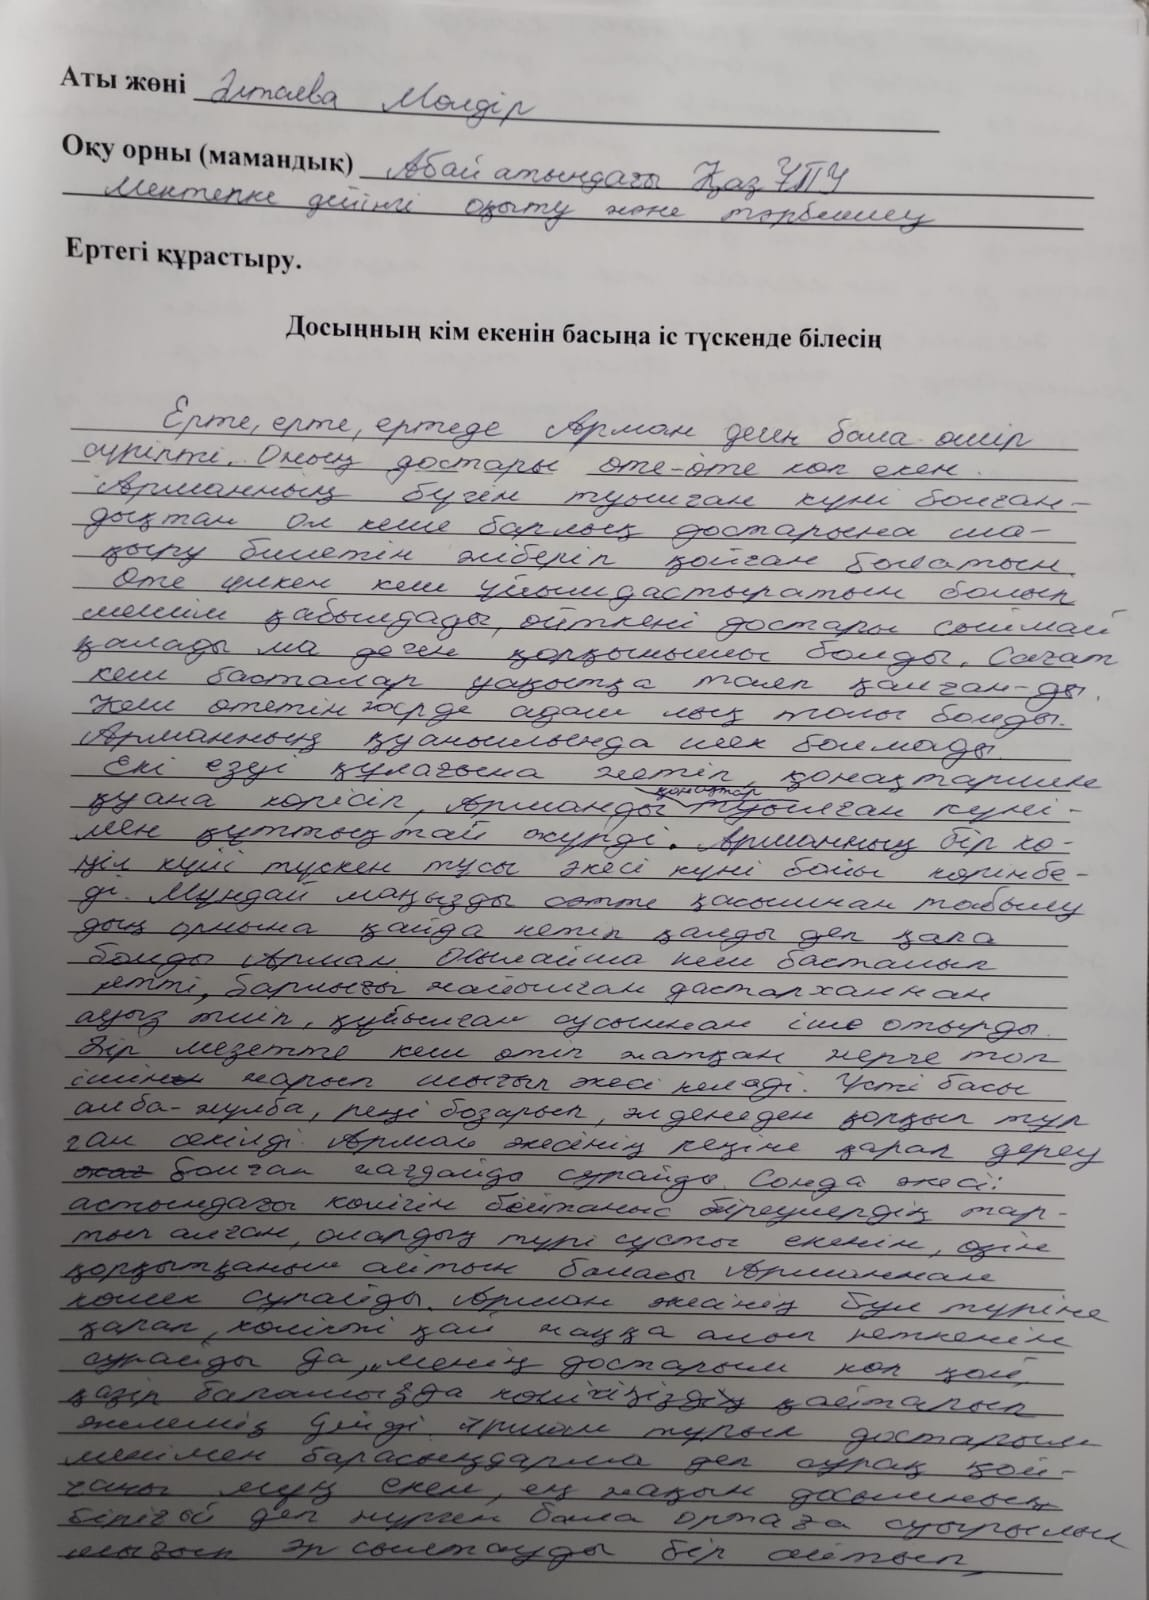 Аты жөні Әлтаева Мөлдір
Оқу орны (мамандық) Абай атындағы ҚазҰПУ
Мектепке дейінгі оқыту және тәрбиелеу
Ертегі құрастыру.
Досыңның кім екенін басыңа іс түскенде білесің
Ерте, ерте, ертеде Арман деген бала өмір
сүріпті. Оның достары өте-өте көп екен.
Арманның бүген туылған күні болған-
дықтан ол кеше барлық достарына ша-
қыру билетін жіберіп қойған болатын.
Өте үлкен кеш ұйымдастыратын болып
шешім қабылдады, өйткені достары сыймай
қалады ма деген қорқынышы болды. Сағат
кеш басталар уақытқа таяп қалған-ды.
Кеш өтетін жерде адам лық толы болды.
Арманның қуанышында шек болмады.
Екі езуі құлағына жетіп, қонақтарымен
қуана көрісіп, Арманды қонақтар туылған күні-
мен құттықтай жүрді. Арманның бір кө-
ңіл күйі түскен тұсы әкесі күні бойы көрінбе-
ді. Мұндай маңызды сәтте қасымнан табылу
дың орнына қайда кетіп қалды деп қапа
болды Арман. Осылайша кеш басталып
кетті, барлығы жайылған дастарханнан
ауыз тиіп, құйылған сусыннан іше отырды.
Бір мезетте кеш өтіп жатқан жерге топ
ішінен жарып шығып әкесі келеді. Үсті басы
алба-жұлба, реңі бозарып, әлденеден қорқып тұр
ған секілді. Арман әкесінің кеңіне қарап дереу
болған жағдайды сұрайды. Сонда әкесі:
астындағы көлігін бейтаныс біреулердің тар-
тып алған, олардың түрі сұсты екенін, өзін
қорқытқанын айтып баласы Арманнан
көмек сұрайды. Арман әкесінің бұл түріне
қарап, көлікті қай жаққа алып кеткенін
сұрайды да, „менің достарым көп қой,
қазір барамызда көлігіңізді қайтарып
әкелеміз дейді. Арман тұрып достарым
менімен барасыңдарма деп сұрақ қой-
ғаны мұң екен, ең жақын досымның
бірігөй деп жүрген бала ортаға суырылып
шығып әр сылтауды бір айтып,